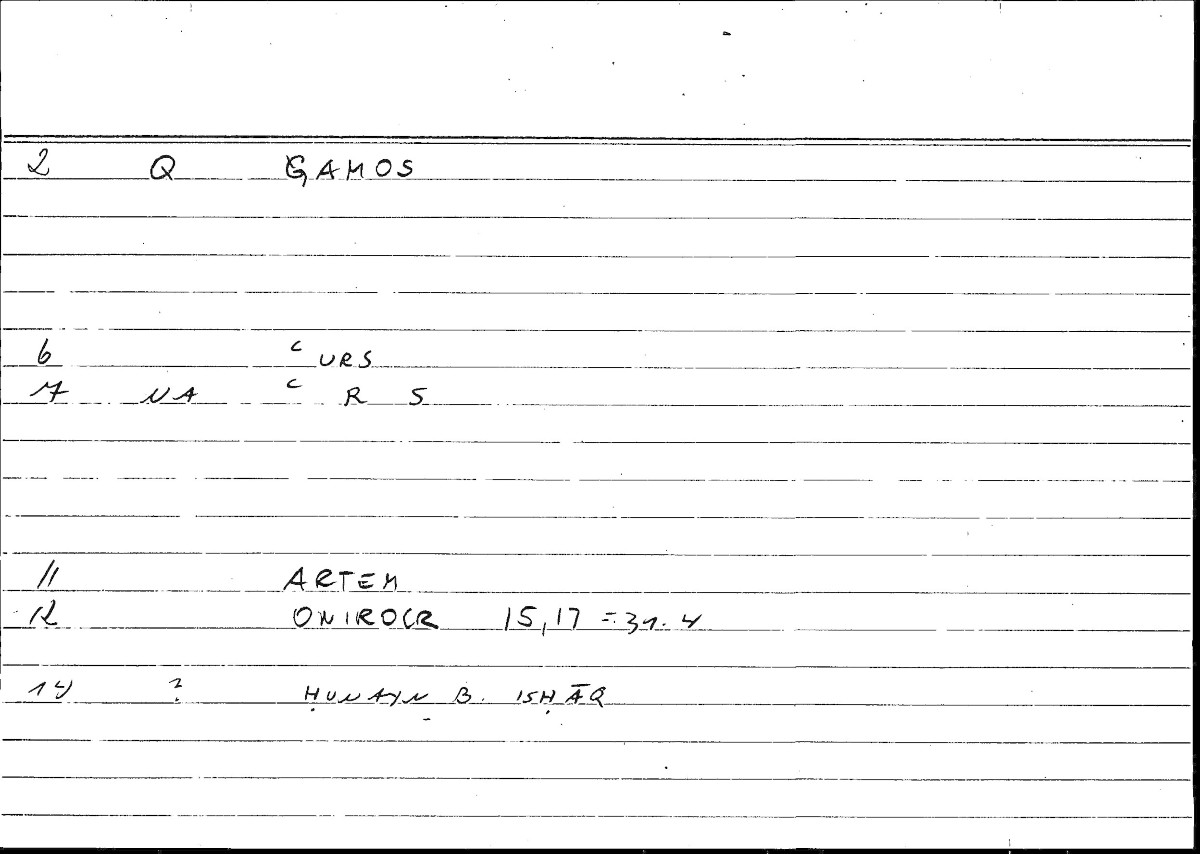 2 Q GAMOS
6 ʿURS
7 NA ʿ R S
11 ARTEM
12 ONIROCR 15,17 = 31.4
14 ? ḤUNAYN B. ISḤĀQ